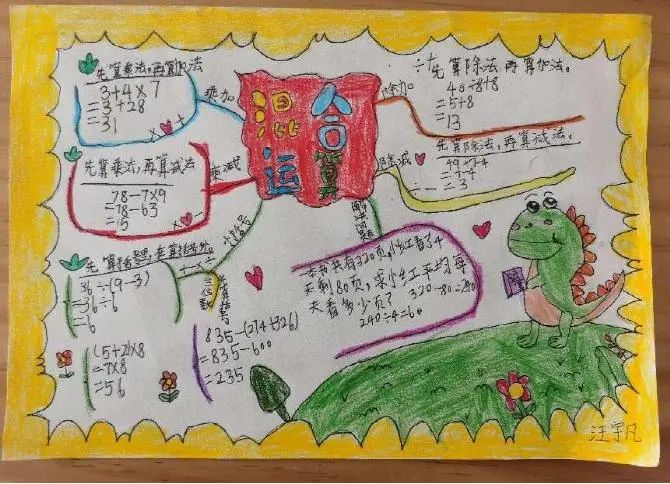 先算乘法,再算加法
3+4×7
=3+28
=31
×→+
乘加
先算乘法,再算减法
78-7×9
=78-63
=15
×→-
乘减
混合
运算
÷→+
先算除法,再算加法。
40÷8+8
=5+8
=13
除加
先算除法,再算减法。
49÷7-4
=7-4
=3
÷→-
除减
小括号
36÷(9-3)
=36÷6
=6
(5+2)×8
=7×8
=56
三位数
835-(274+326)
=835-600
=235
解决问题
一本书共有320页,小红看了4
天剩80页,求小红平均每
天看多少页?
320-80=240
240÷4=60
汪宇凡